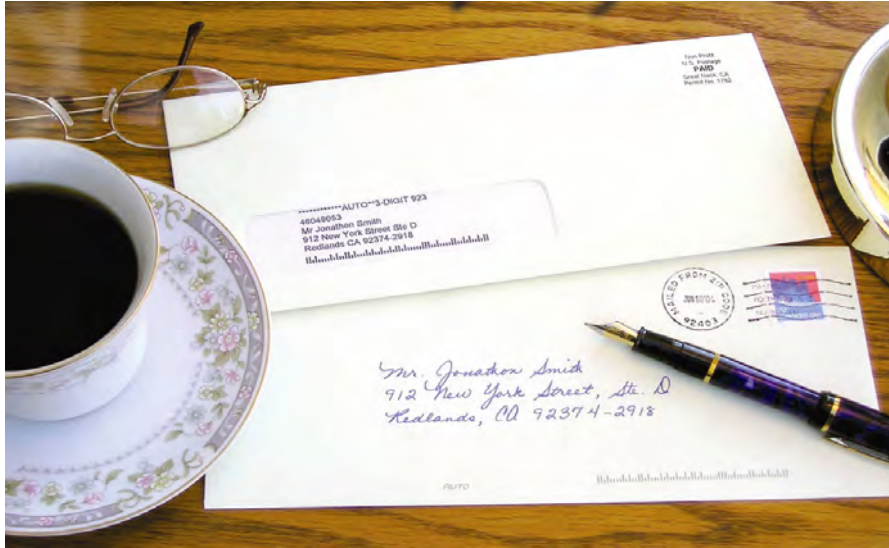 Non Profit
U.S. Postage
PAID
Great Neck, CA
Permit No. 1752
************AUTO**3-DIGIT 923
46049053
Mr Jonathon Smith
912 New York Street Ste D
Redlands CA 92374-2918
MAILED FROM ZIP CODE
JUN 10 '04
92403
Mr. Jonathon Smith
912 New York Street, Ste. D
Redlands, CA 92374-2918
AUTO